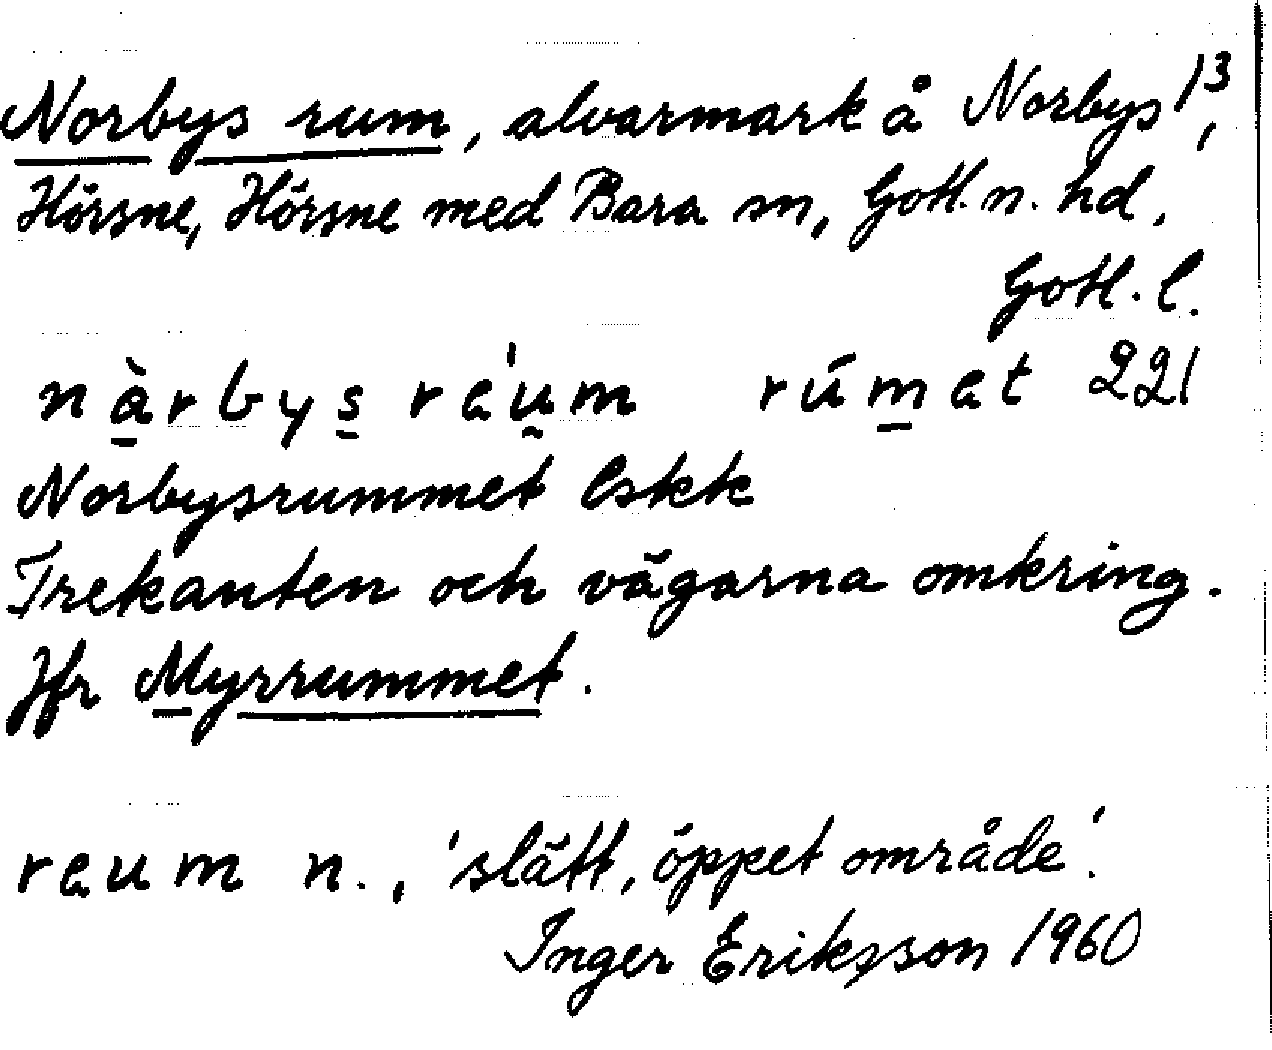 Norbys rum, alvarmark å Norbys 1³,
Hörsne, Hörsne med Bara sn, Gotl. n. hd,
Gotl. l.
nàrbys ráum rúmet 221
Norbysrummet Eskk
Trekanten och vägarna omkring.
Jfr Myrrummet.
raum n., 'slätt, öppet område'.
Inger Eriksson 1960